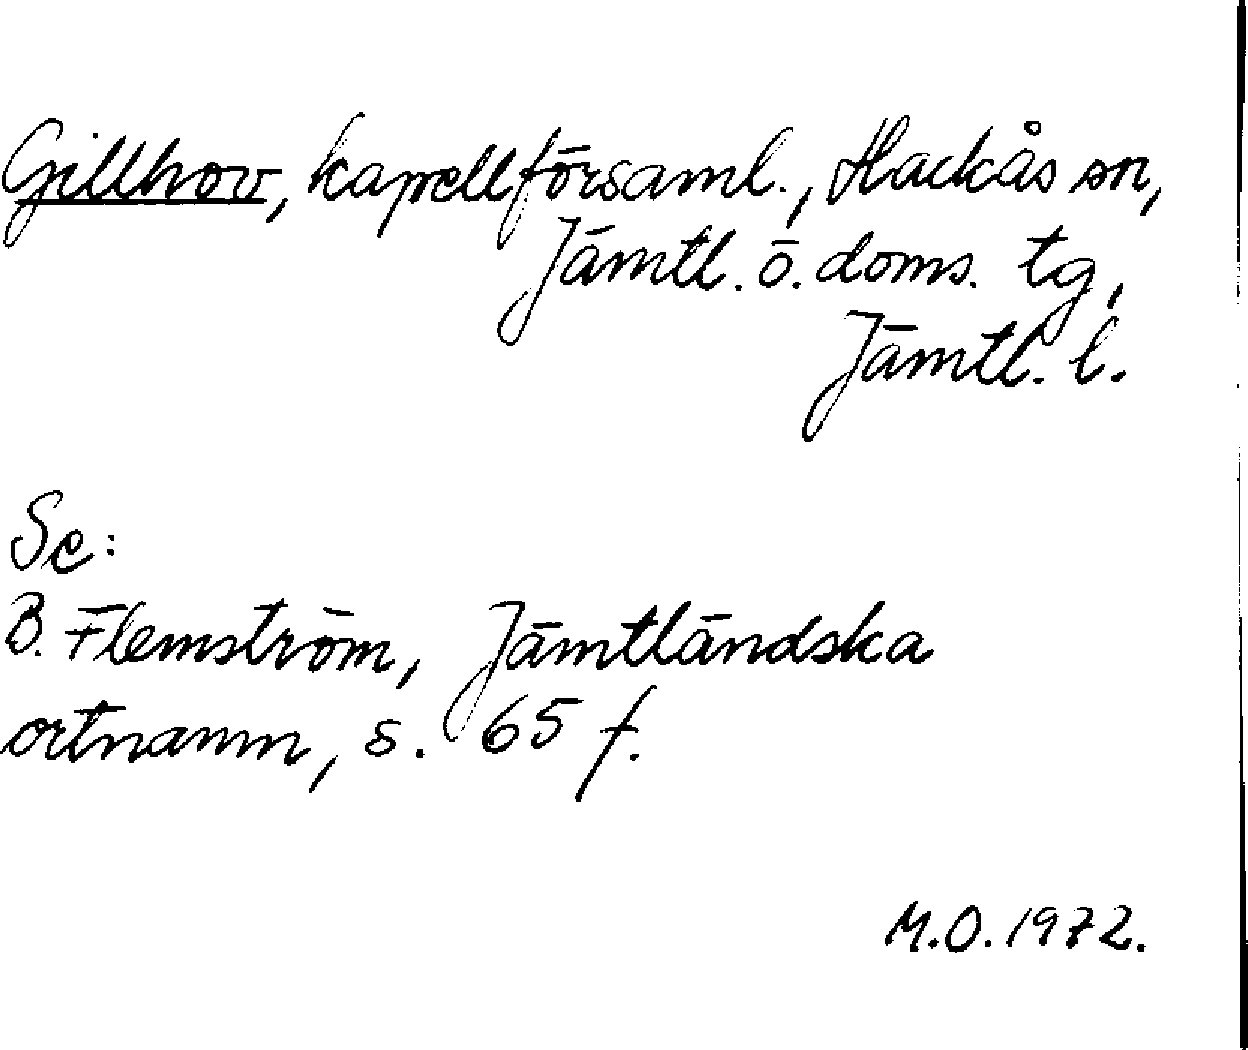 Gillhov, kapellförsaml., Hackås sn,
Jämtl. ö. doms. tg,
Jämtl. l.
Se:
B. Flemström, Jämtländska
ortnamn, s. 65 f.
M.O. 1972.